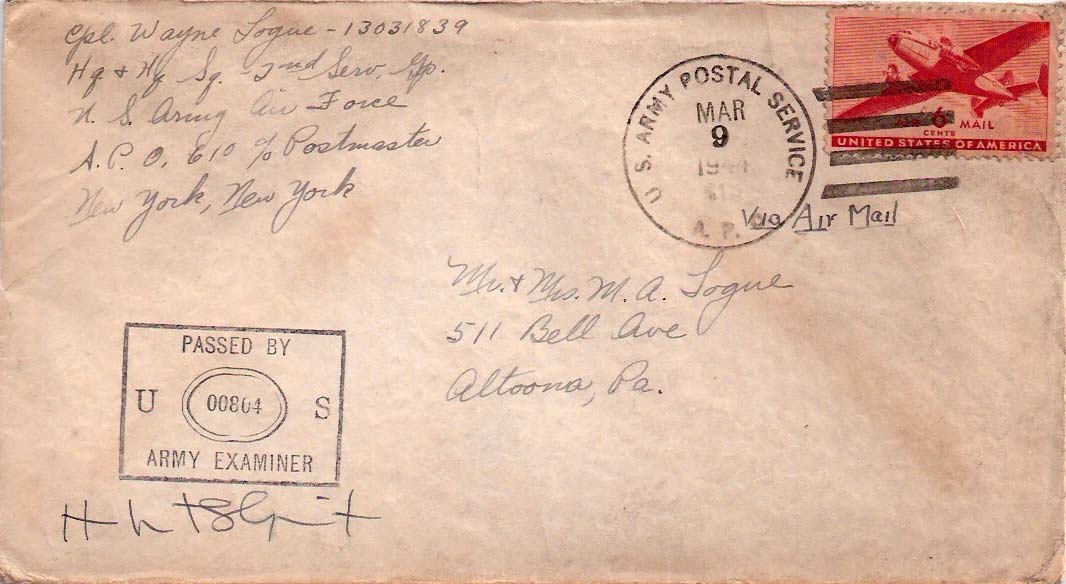 Cpl. Wayne Logue - 13031839
Hq. + Hq. Sq. - 2nd Serv. Gp.
U. S. Army Air Force
A. P. O. 610 c/o Postmaster
New York, New York
U. S. ARMY POSTAL SERVICE
MAR
9
1944
A. P.
6
CENTS
MAIL
UNITED STATES OF AMERICA
Via Air Mail
Mr. & Mrs. M. A. Logue
511 Bell Ave
Altoona, Pa.
PASSED BY
U 00804 S
ARMY EXAMINER